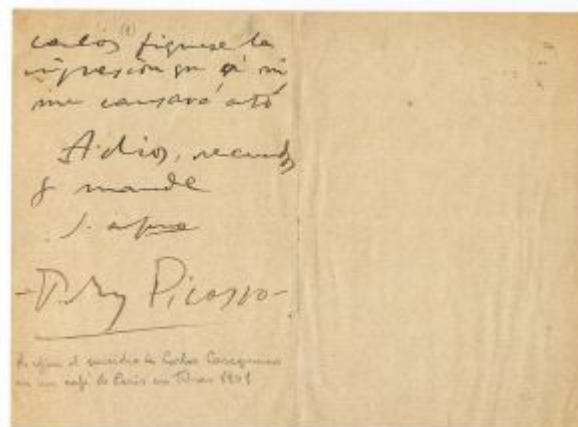 Carlos (1) figurese la
impresión que á mi
me causará esto
Adios, recuerdos
y mande
S. afmo
-P. Ruiz Picasso-
Se refiere el suicidio de Carlos Casagemas
en un café de Paris en Febrero 1901